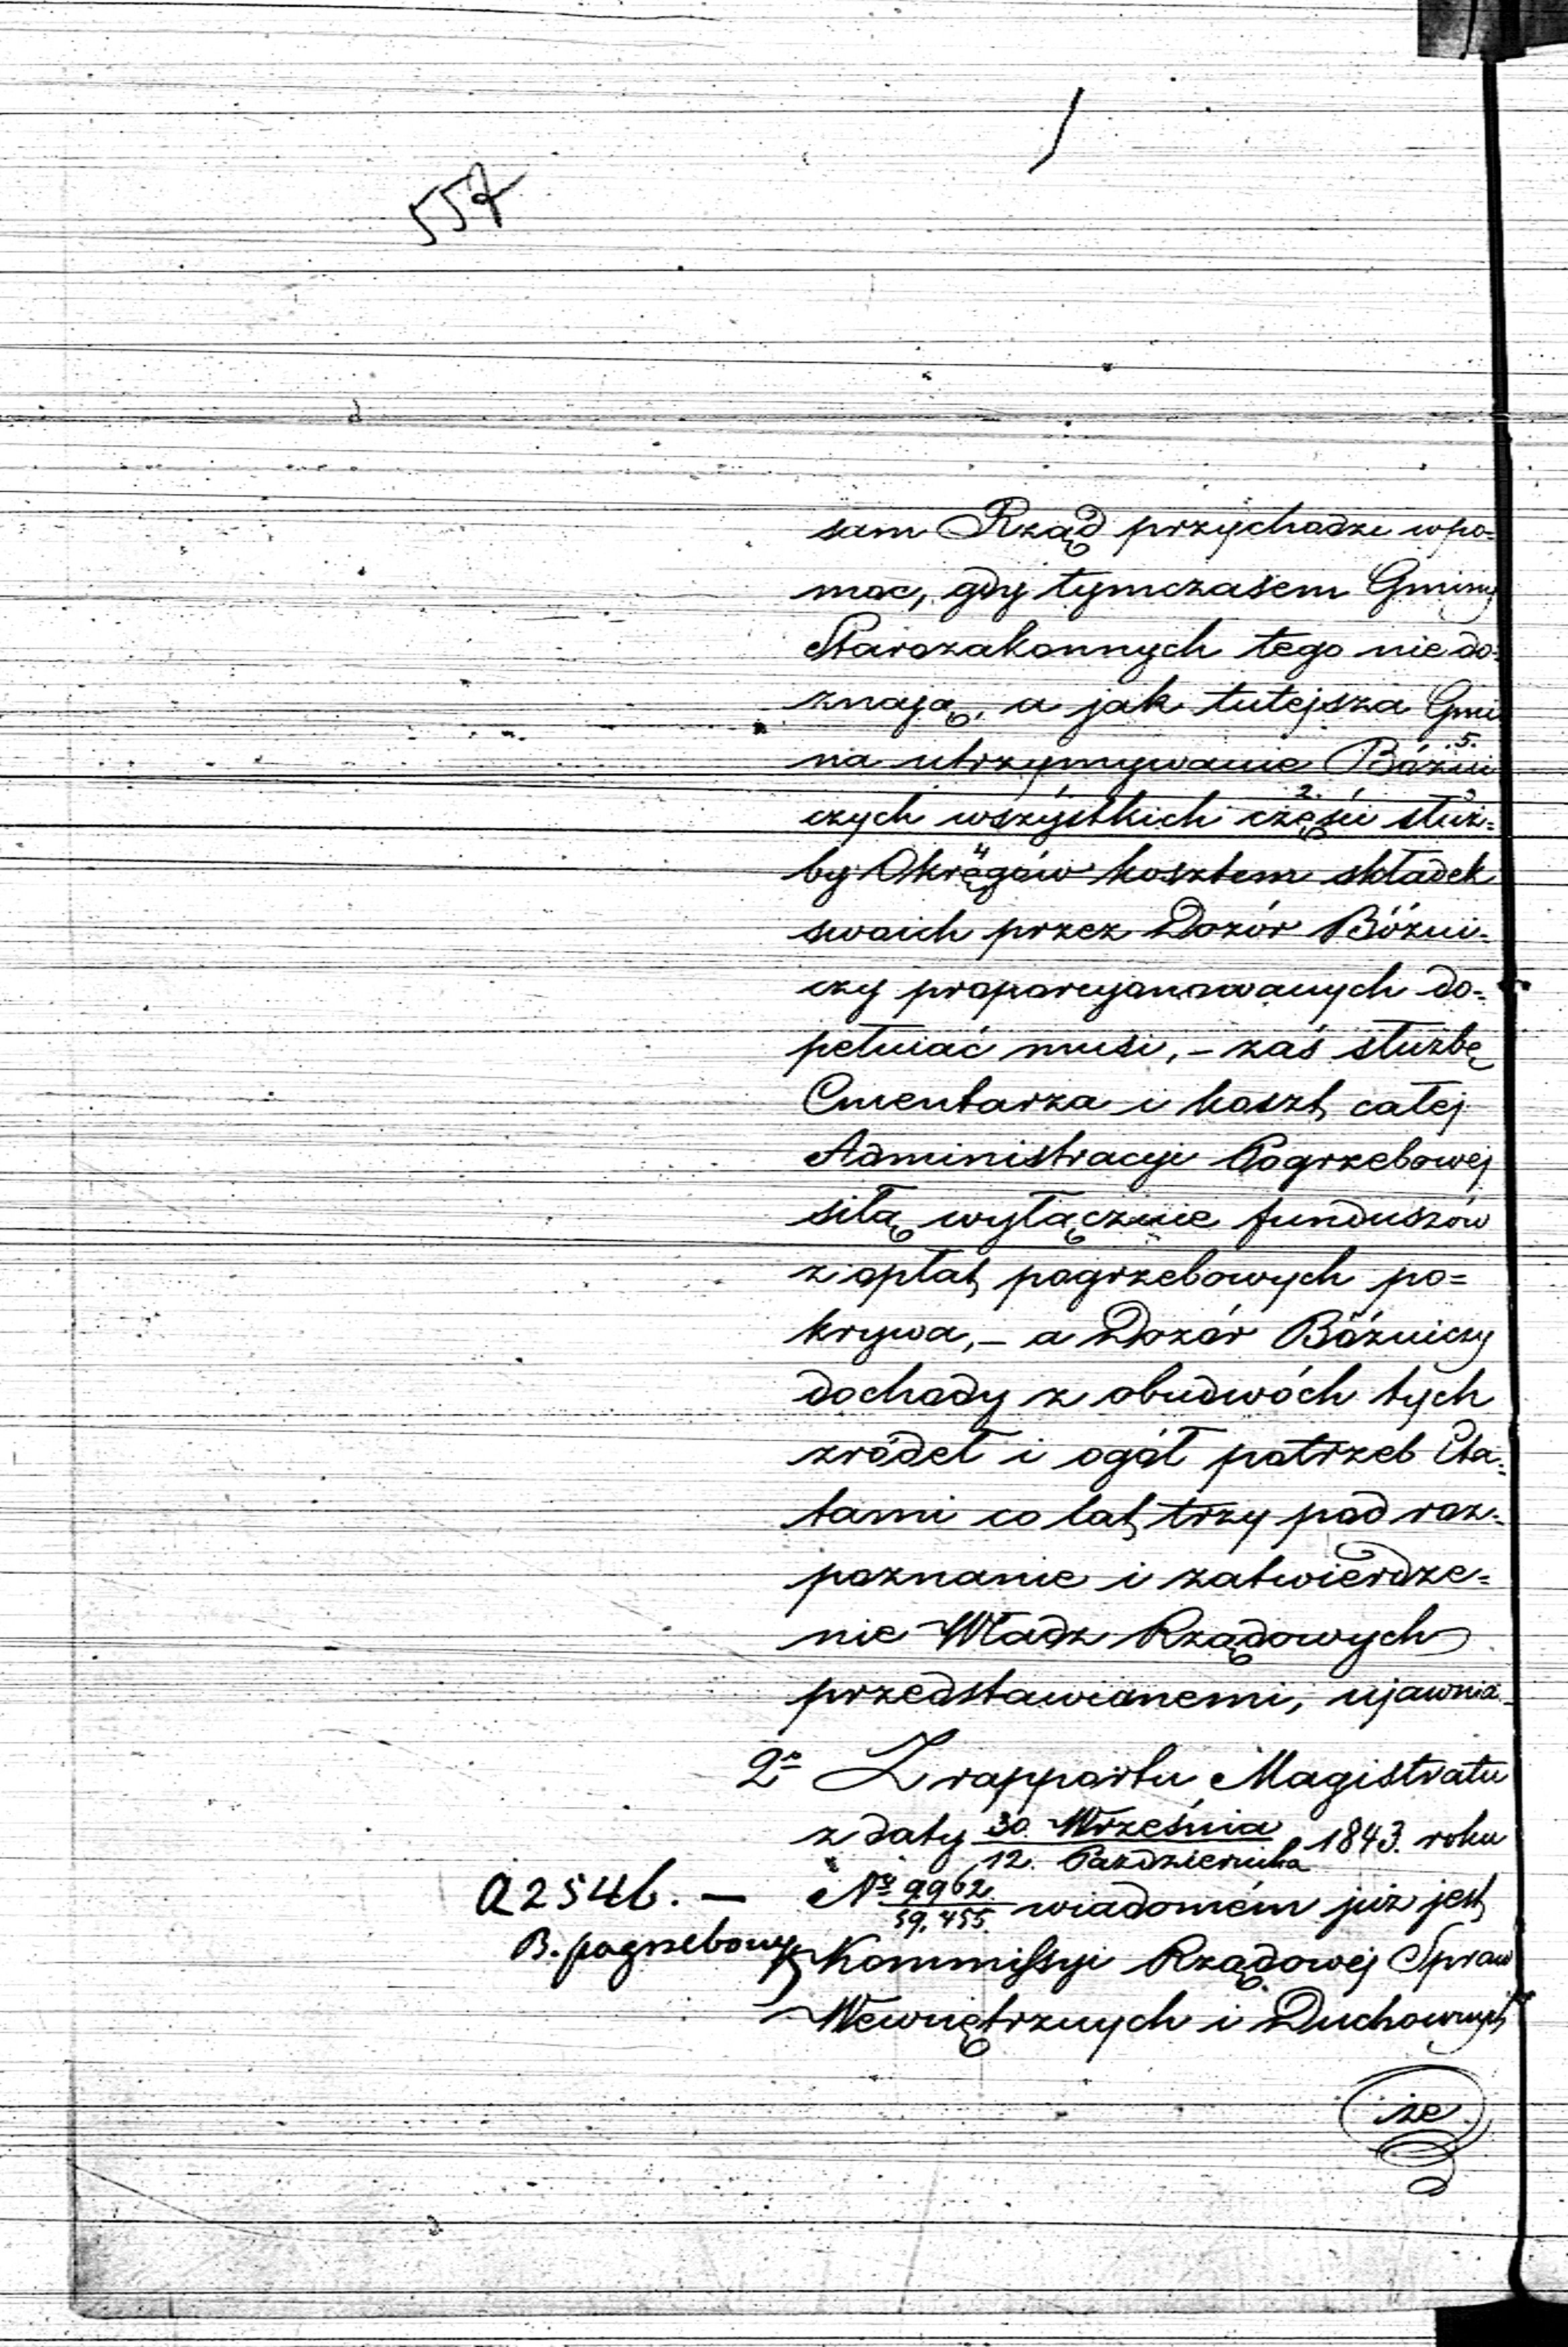 557
sam Rząd przychodzi w po=
moc, gdy tymczasem Gminy
Starozakonnych tego nie do=
znają, a jak tutejsza Gmi
na utrzymywanie Bóźni
czych wszystkich części służ=
by Okręgów kosztem składek
swoich przez Dozór Bóźni=
czy proporcyonowanych do=
pełniać musi, – zaś służbę
Cmentarza i koszt całej
Administracyi Pogrzebowej
siłą wyłącznie funduszów
z opłat pogrzebowych po=
krywa, – a Dozór Bóźniczy
dochody z obudwóch tych
źródeł i ogół potrzeb Eta=
tami co lat trzy pod roz=
poznanie i zatwierdze=
nie Władz Rządowych
przedstawianemi, ujawnia.
2o Z rapportu Magistratu
z daty 30. Września / 12. Października 1843. roku
No 9962 / 59,455. wiadomém już jest
a 254b. —
B. pogrzebowy
Kommissyi Rządowej Spraw
Wewnętrznych i Duchownych
że